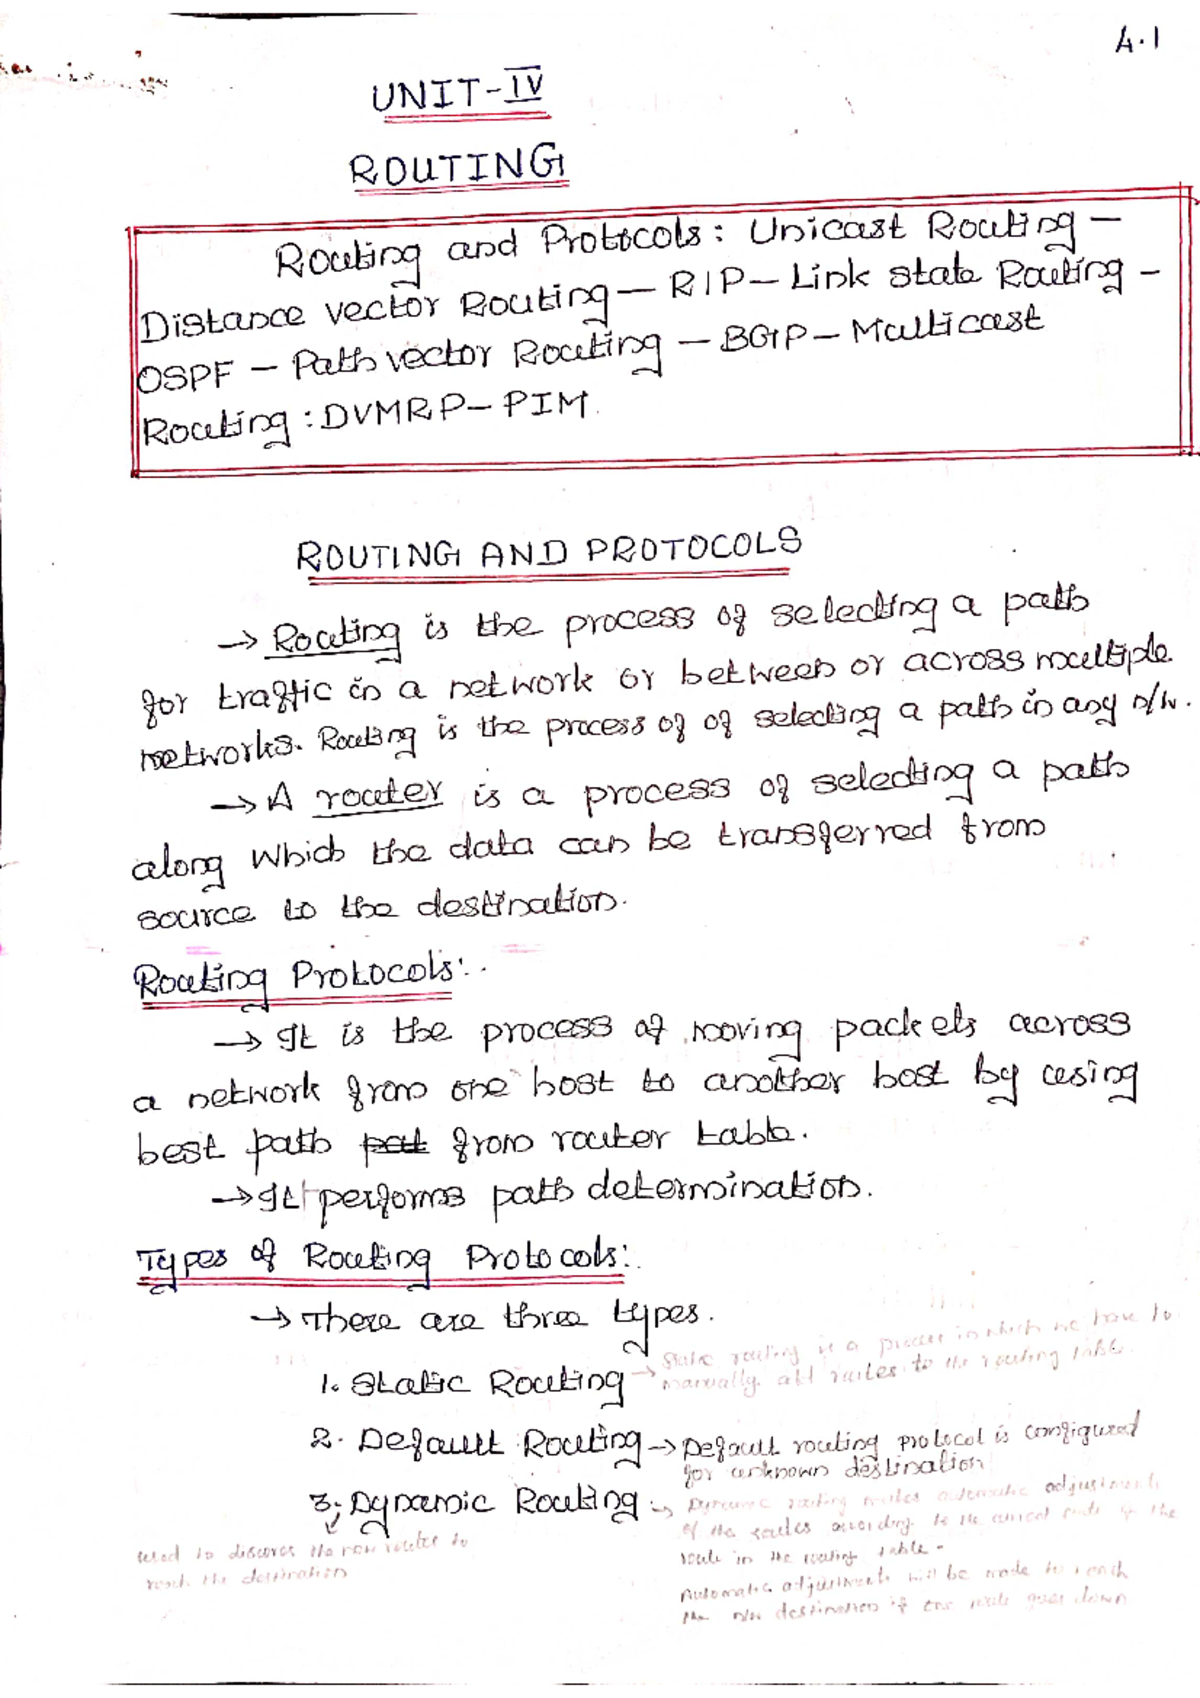 4.1
UNIT-IV
ROUTING
Routing and Protocols: Unicast Routing –
Distance vector Routing – RIP – Link state Routing –
OSPF – Path vector Routing – BGP – Multicast
Routing : DVMRP – PIM.
ROUTING AND PROTOCOLS
→ Routing is the process of selecting a path
for traffic in a network or between or across multiple
networks. Routing is the process of of selecting a path in any n/w.
→ A router is a process of selecting a path
along which the data can be transferred from
source to the destination.
Routing Protocols:
→ It is the process of moving packets across
a network from one host to another host by using
best path from router table.
→ It performs path determination.
Types of Routing Protocols:
→ There are three types.
1. Static Routing → Static routing is a process in which we have to
manually add routes to the routing table.
2. Default Routing → Default routing protocol is configured
for unknown destination
3. Dynamic Routing → Dynamic routing makes automatic adjustments
of the routes according to the current state of the
route in the routing table.
used to discover the new routes to
reach the destination
Automatic adjustments will be made to reach
the n/w destination if one route goes down